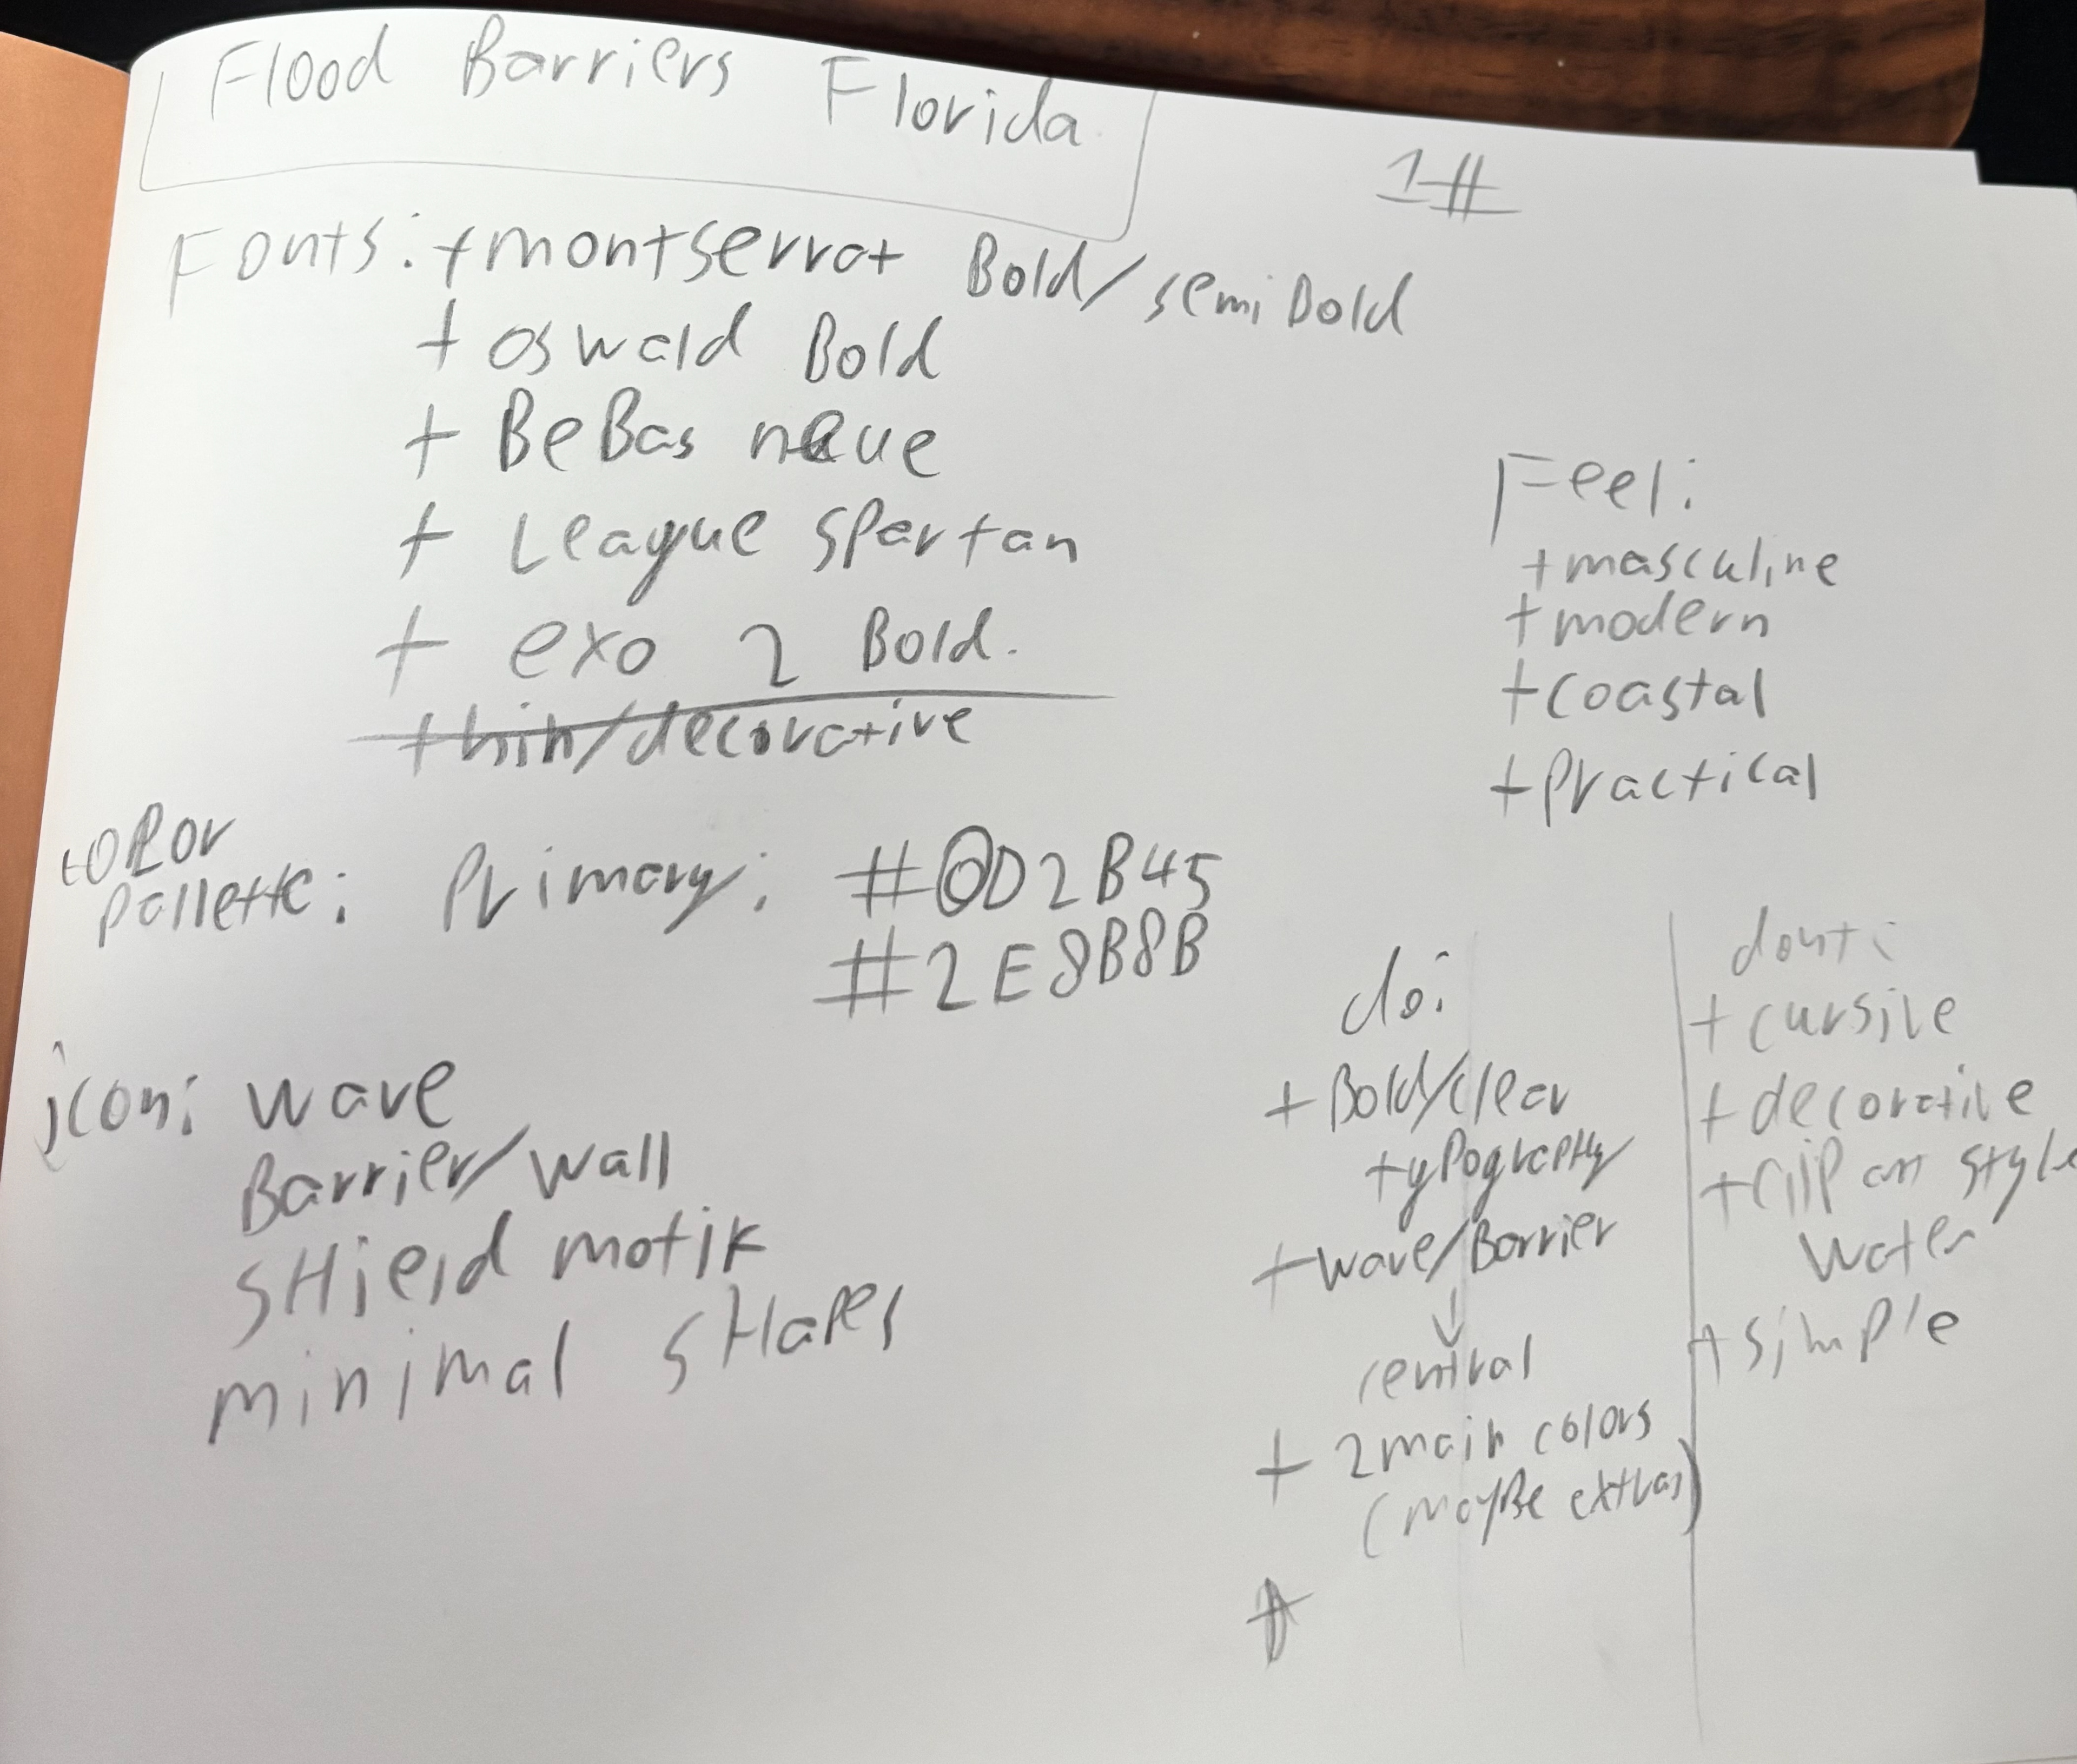 Flood Barriers Florida
1#
Fonts: + montserrat Bold/semi Bold
+ oswald Bold
+ BeBas neue
+ League Spartan
+ exo 2 Bold.
thin/decorative
Feel:
+ masculine
+ modern
+ coastal
+ Practical
color
pallette: Primary: #0D2B45
#2E8B8B
icon: wave
Barrier/wall
SHield motif
minimal SHapes
do:
+ Bold/clear
typograpHy
+ wave/Barrier
↓
central
+ 2 main colors
(mayBe extras)
dont:
+ cursive
+ decorative
+ clip art style
water
+ simple